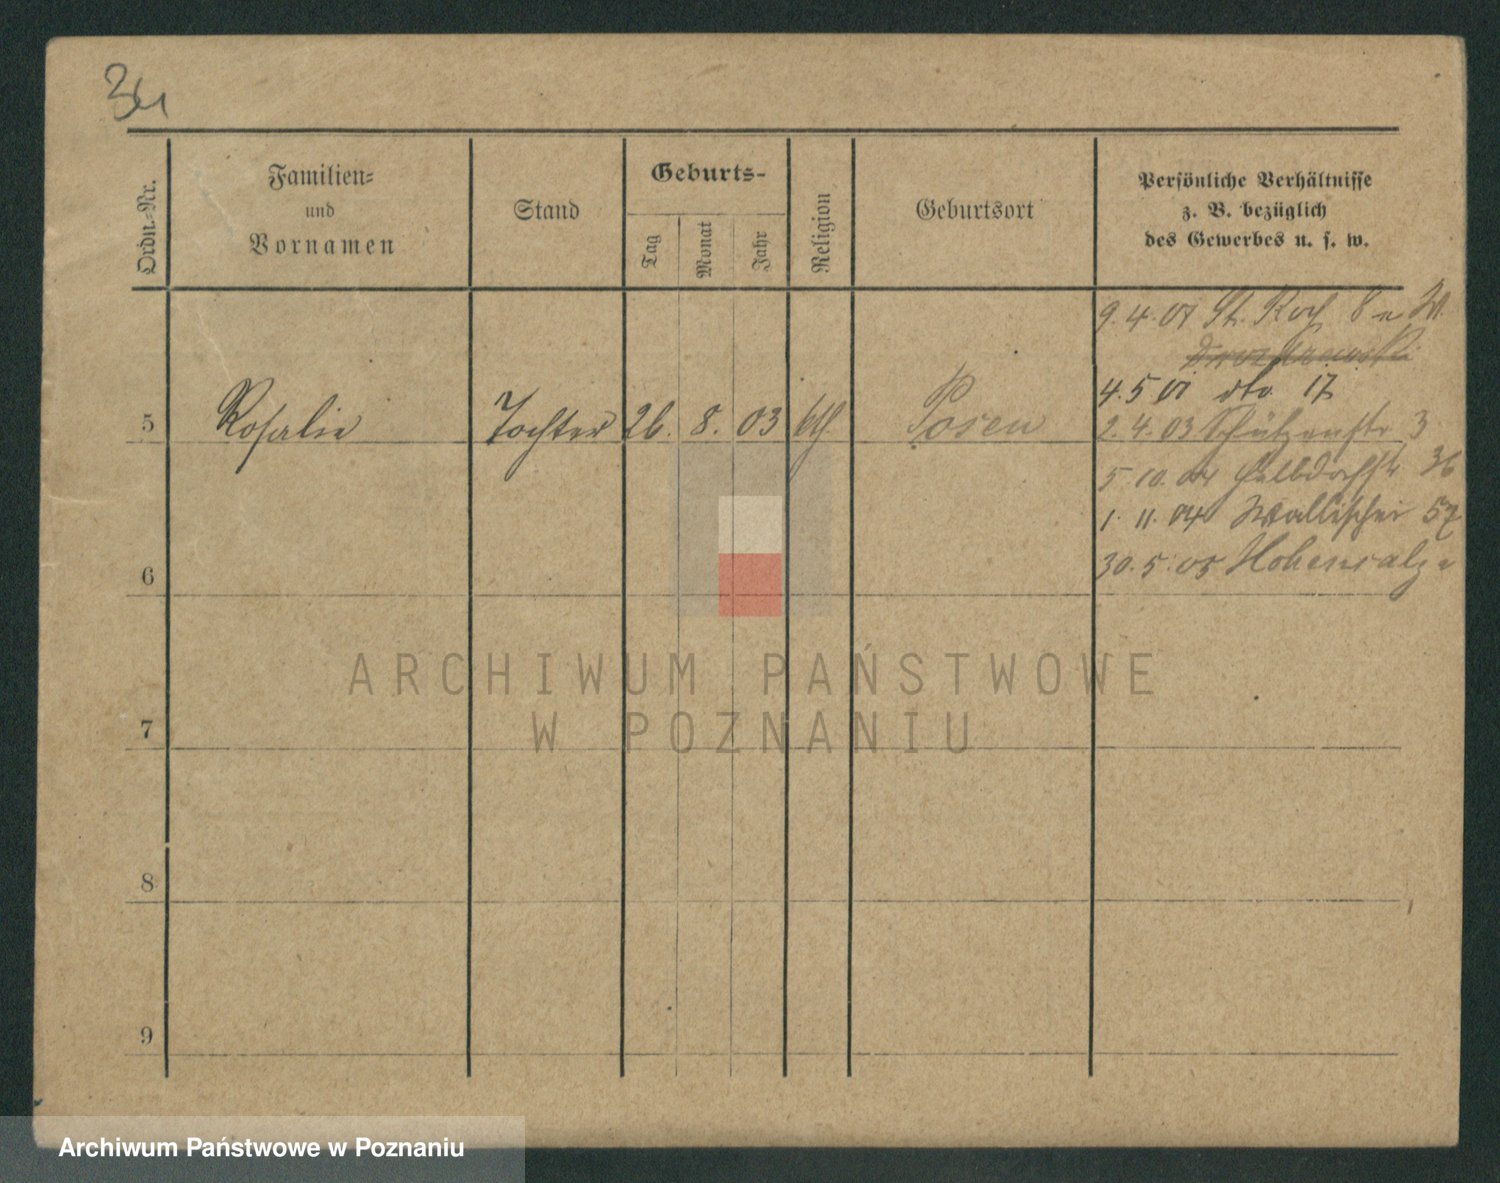 34
Ordn.-Nr.
Familien-
und
Vornamen
Stand
Geburts-
Tag
Monat
Jahr
Religion
Geburtsort
Persönliche Verhältnisse
z. B. bezüglich
des Gewerbes u. s. w.
9. 4. 01 St. Roch 8
4. 5 01 dto. 17
5 Rosalie Tochter 26. 8. 03 kth Posen
2. 4. 03 Schützenstr 3
5 10. 04 Halbdorfstr 36
1. 11. 04 Wallischei 57
6
30. 5. 05 Hohensalza
7
8
9
ARCHIWUM PAŃSTWOWE
W POZNANIU
Archiwum Państwowe w Poznaniu